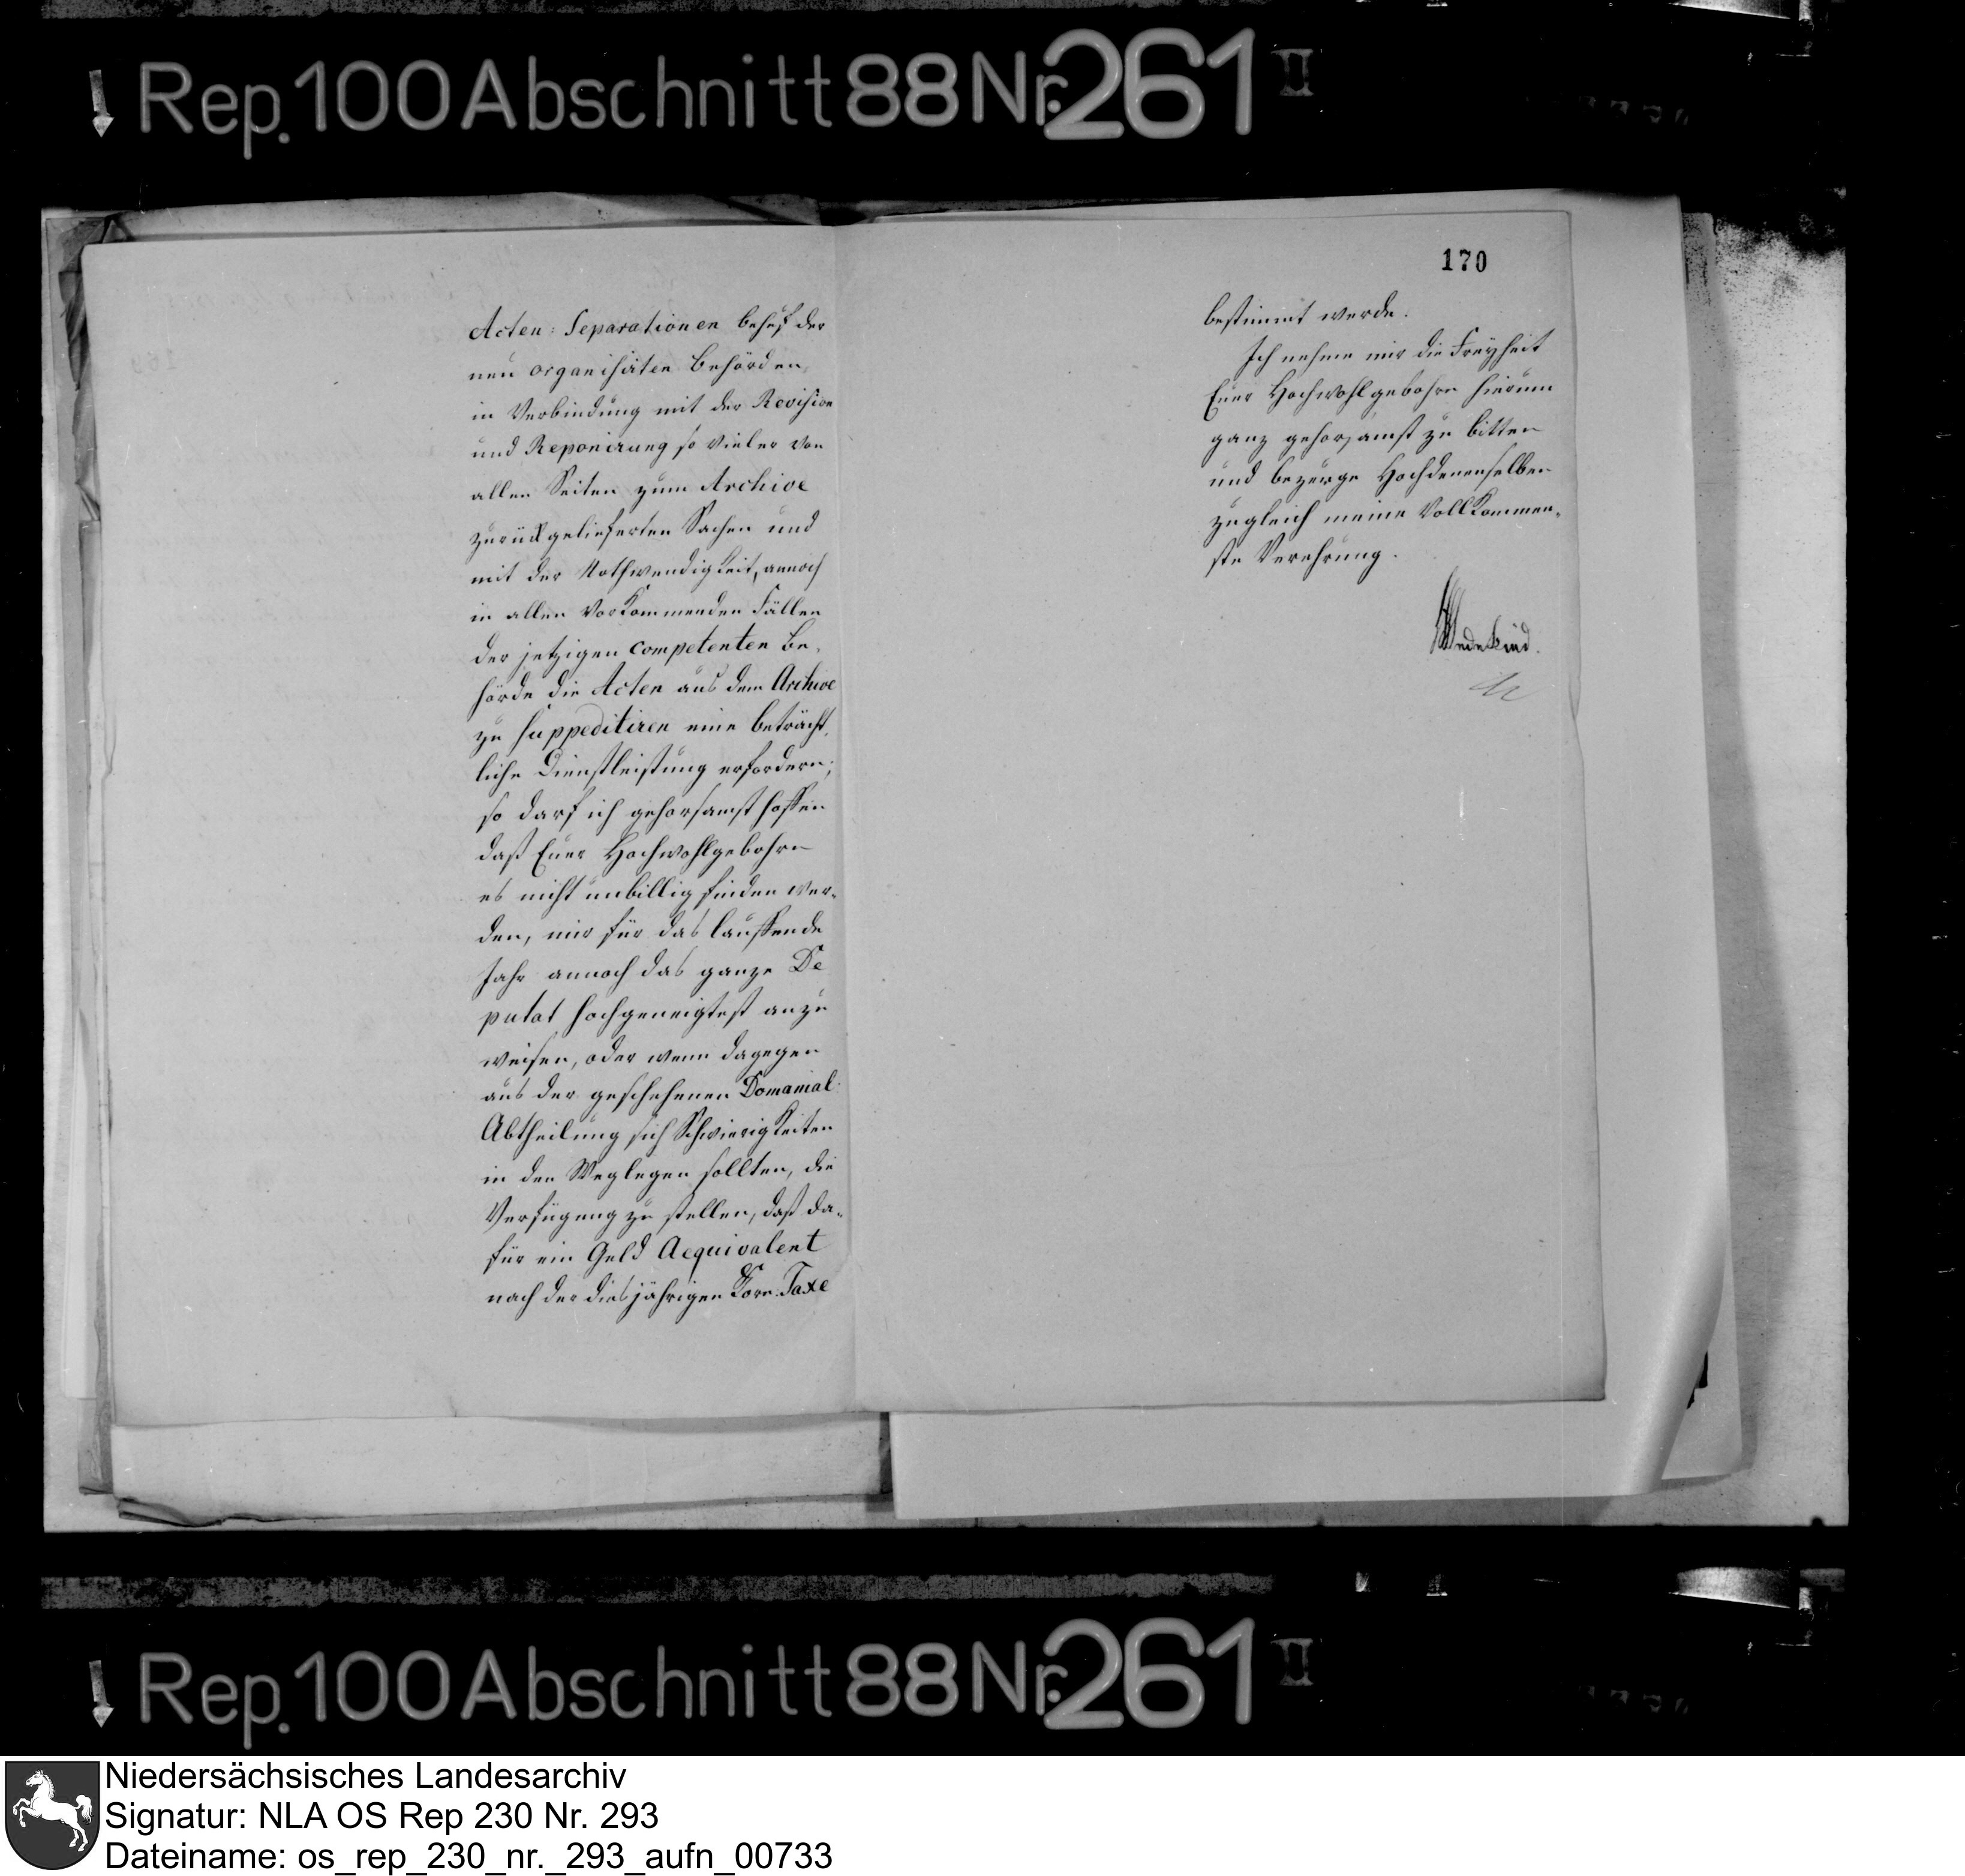 Rep. 100 Abschnitt 88 Nr. 261 II
Acten-Separationen behuf der
neu organisirten Behörden,
in Verbindung mit der Revision
und Reponirung so vieler von
allen Seiten zum Archive
zurückgelieferten Sachen und
mit der Nothwendigkeit, annoch
in allen vorkommenden Fällen
der jetzigen competenten Be-
hörde die Acten aus dem Archive
zu suppeditiren eine beträcht-
liche Dienstleistung erfordern;
so darf ich gehorsamst hoffen
daß Euer Hochwohlgebohrn
es nicht unbillig finden wer-
den, mir für das lauffende
Jahr annoch das ganze De
putat hochgeneigtest anzu
weisen, oder wenn dagegen
aus der geschehenen Domanial
Abtheilung sich Schwierigkeiten
in den Weg legen sollten, die
Verfügung zu stellen, daß da-
für ein Geld Aequivalent
nach der diesjährigen Korn-Taxe
170
bestimmt werde.
Ich nehme mir die Freyheit
Euer Hochwohlgebohrn hierum
ganz gehorsamst zu bitten
und bezeuge Hochdenenselben
zugleich meine vollkommen-
ste Verehrung.
Wedekind.
Rep. 100 Abschnitt 88 Nr. 261 II
Niedersächsisches Landesarchiv
Signatur: NLA OS Rep 230 Nr. 293
Dateiname: os_rep_230_nr._293_aufn_00733